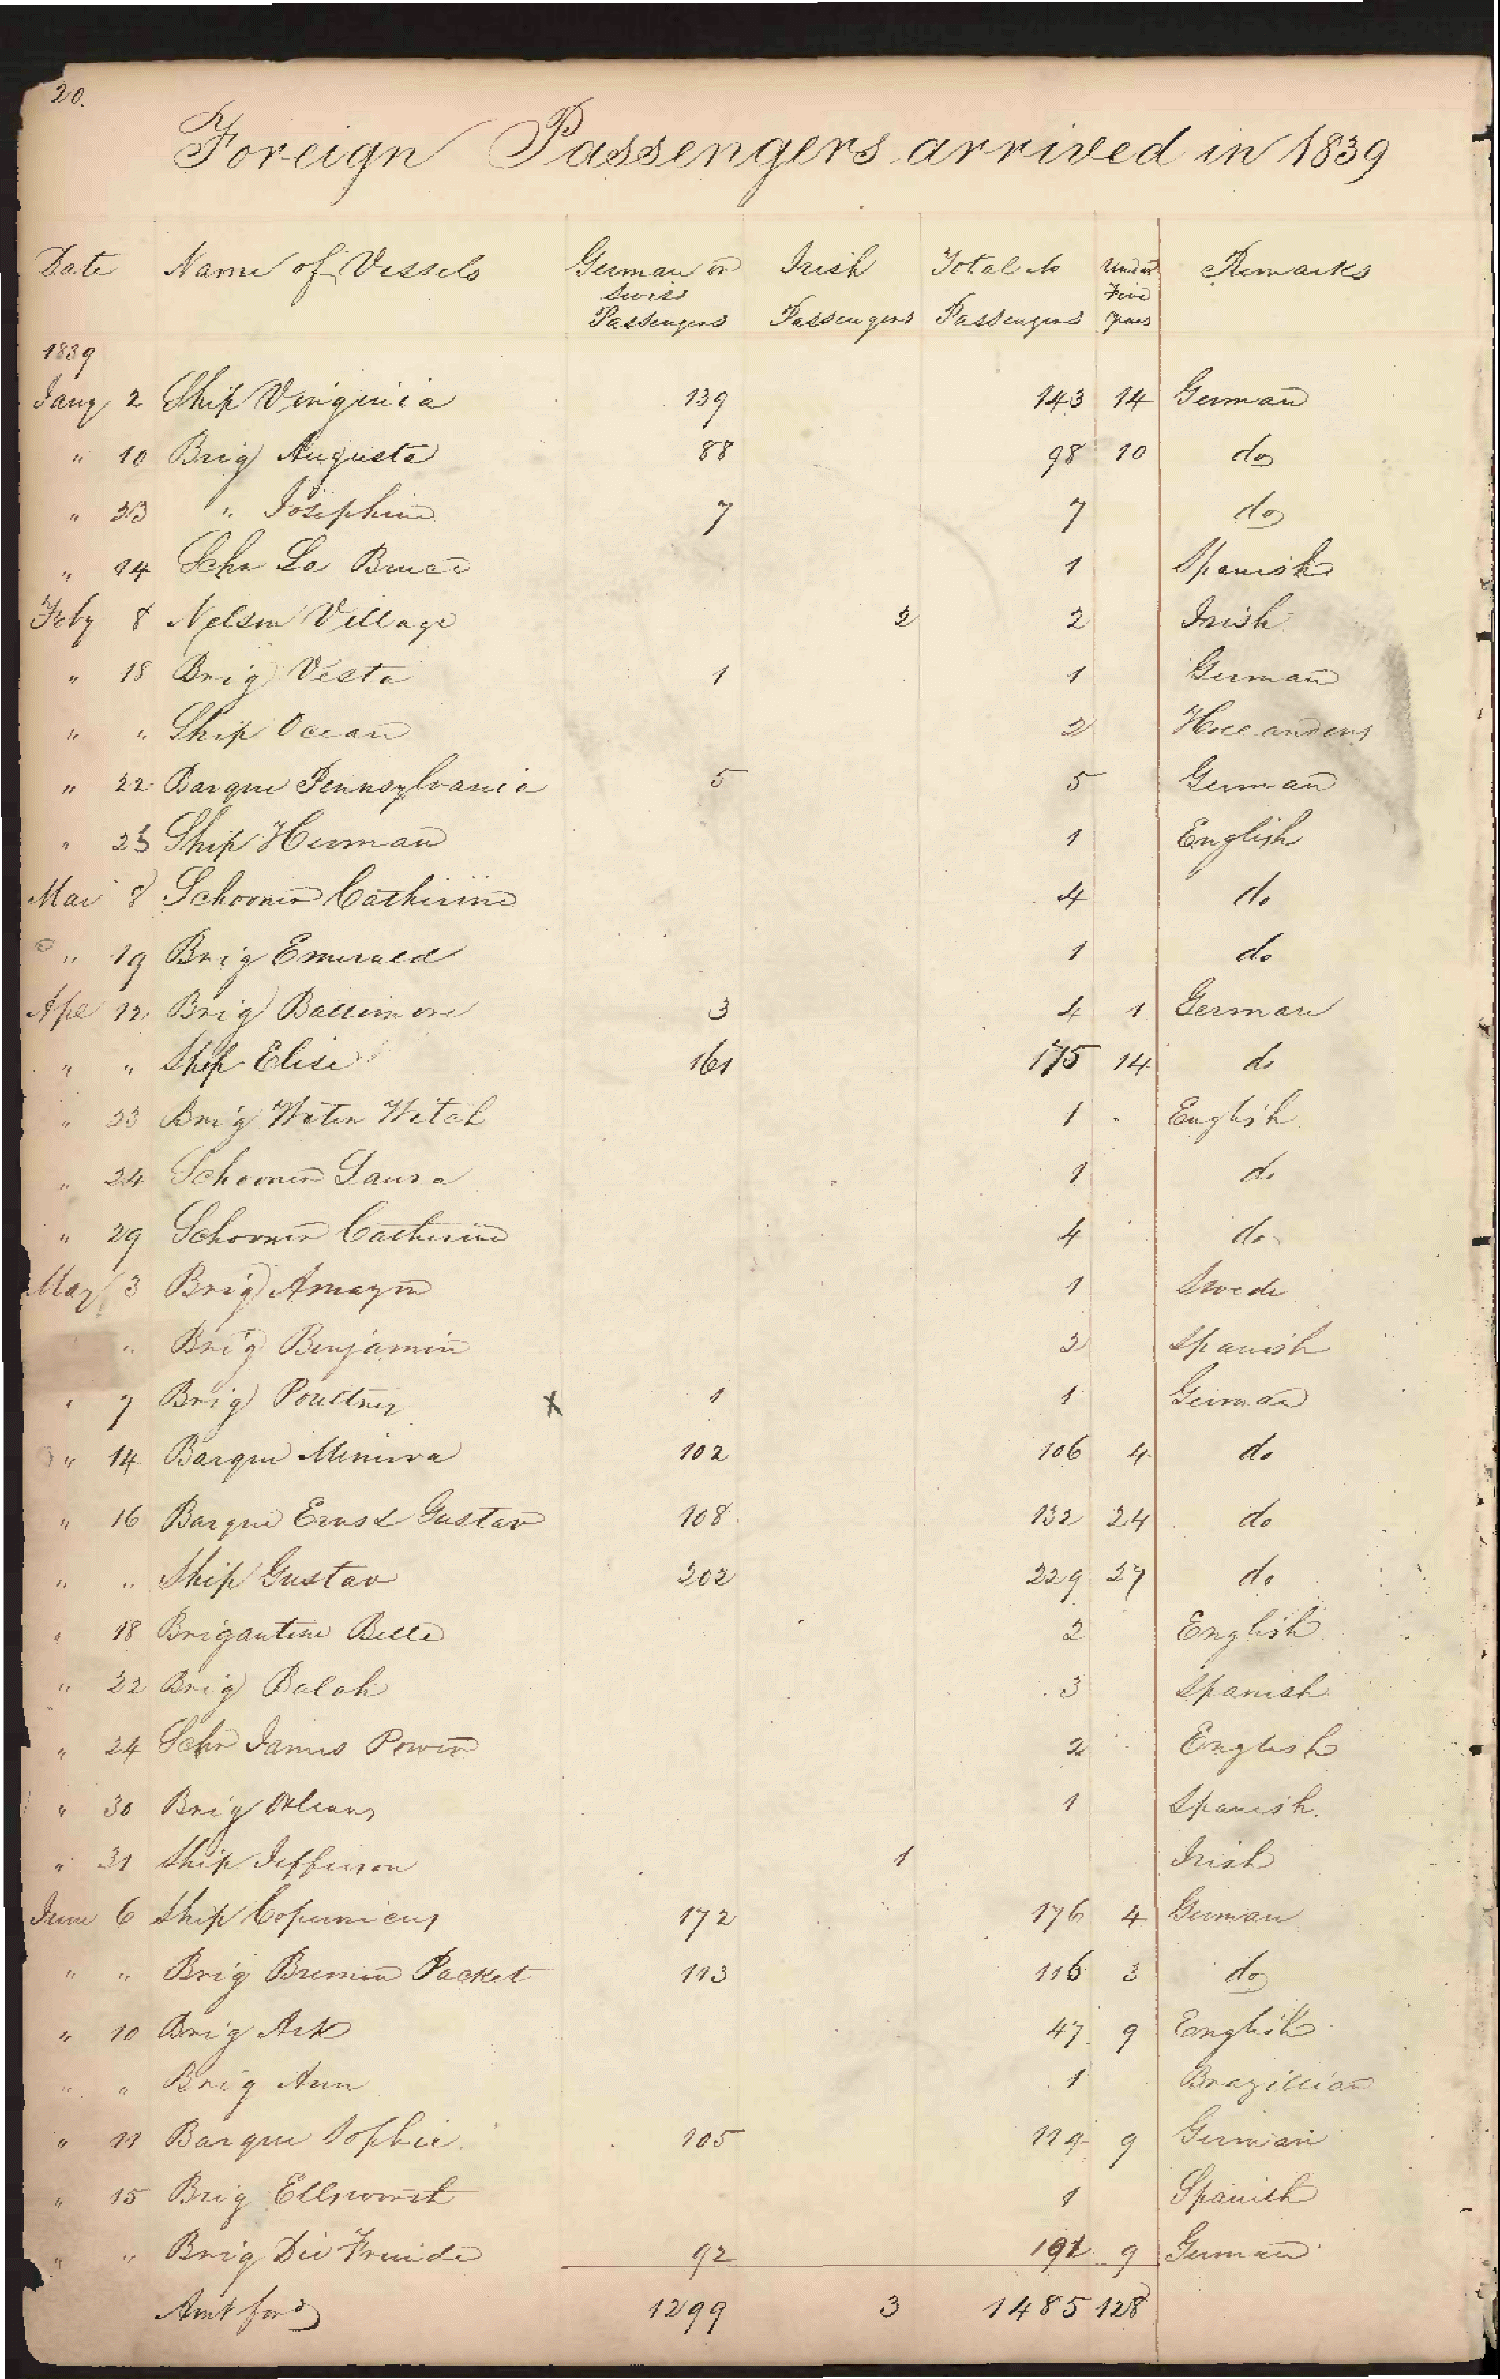 20.
Foreign Passengers arrived in 1839
Date Name of Vessels German or Irish Total No Under Remarks
Swiss Five
Passengers Passengers Passengers years
1839
Jany 2 Ship Virginia 139 143 14 German
" 10 Brig Augusta 88 98 10 do
" 23 " Josephine 7 7 do
" 14 Schr La Bruce 1 Spanish
Feby 8 Nelson Village 2 2 Irish
" 18 Brig Vesta 1 1 German
" " Ship Ocean 2 Hollanders
" 22 Barque Pennsylvania 5 5 German
" 25 Ship Herman 1 English
Mar 8 Schooner Catherine 4 do
" 19 Brig Emerald 1 do
Apl 12 Brig Baltimore 3 4 1 German
" " Ship Elise 161 175 14 do
" 23 Brig Water Witch 1 English
" 24 Schooner Laura 1 do
" 29 Schooner Catherine 4 do
May 3 Brig Amazon 1 Swede
" Brig Benjamin 2 Spanish
" 7 Brig Poultney X 1 1 German
" 14 Barque Minerva 102 106 4 do
" 16 Barque Ernst Gustav 108 132 24 do
" " Ship Gustav 202 229 27 do
" 18 Brigantine Belle 2 English
" 22 Brig Balah 3 Spanish
" 24 Schr James Power 2 English
" 30 Brig Orleans 1 Spanish.
" 31 Ship Jefferson 1 Irish
June 6 Ship Copernicus 172 176 4 German
" " Brig Bremen Packet 113 116 3 do
" 10 Brig Ark 47 9 English
" " Brig Ann 1 Brazillian
" 11 Barque Sophie 105 114 9 German
" 15 Brig Ellsworth 1 Spanish
" " Brig Die Freide 92 101 9 German
Amt ford 1299 3 1485 128